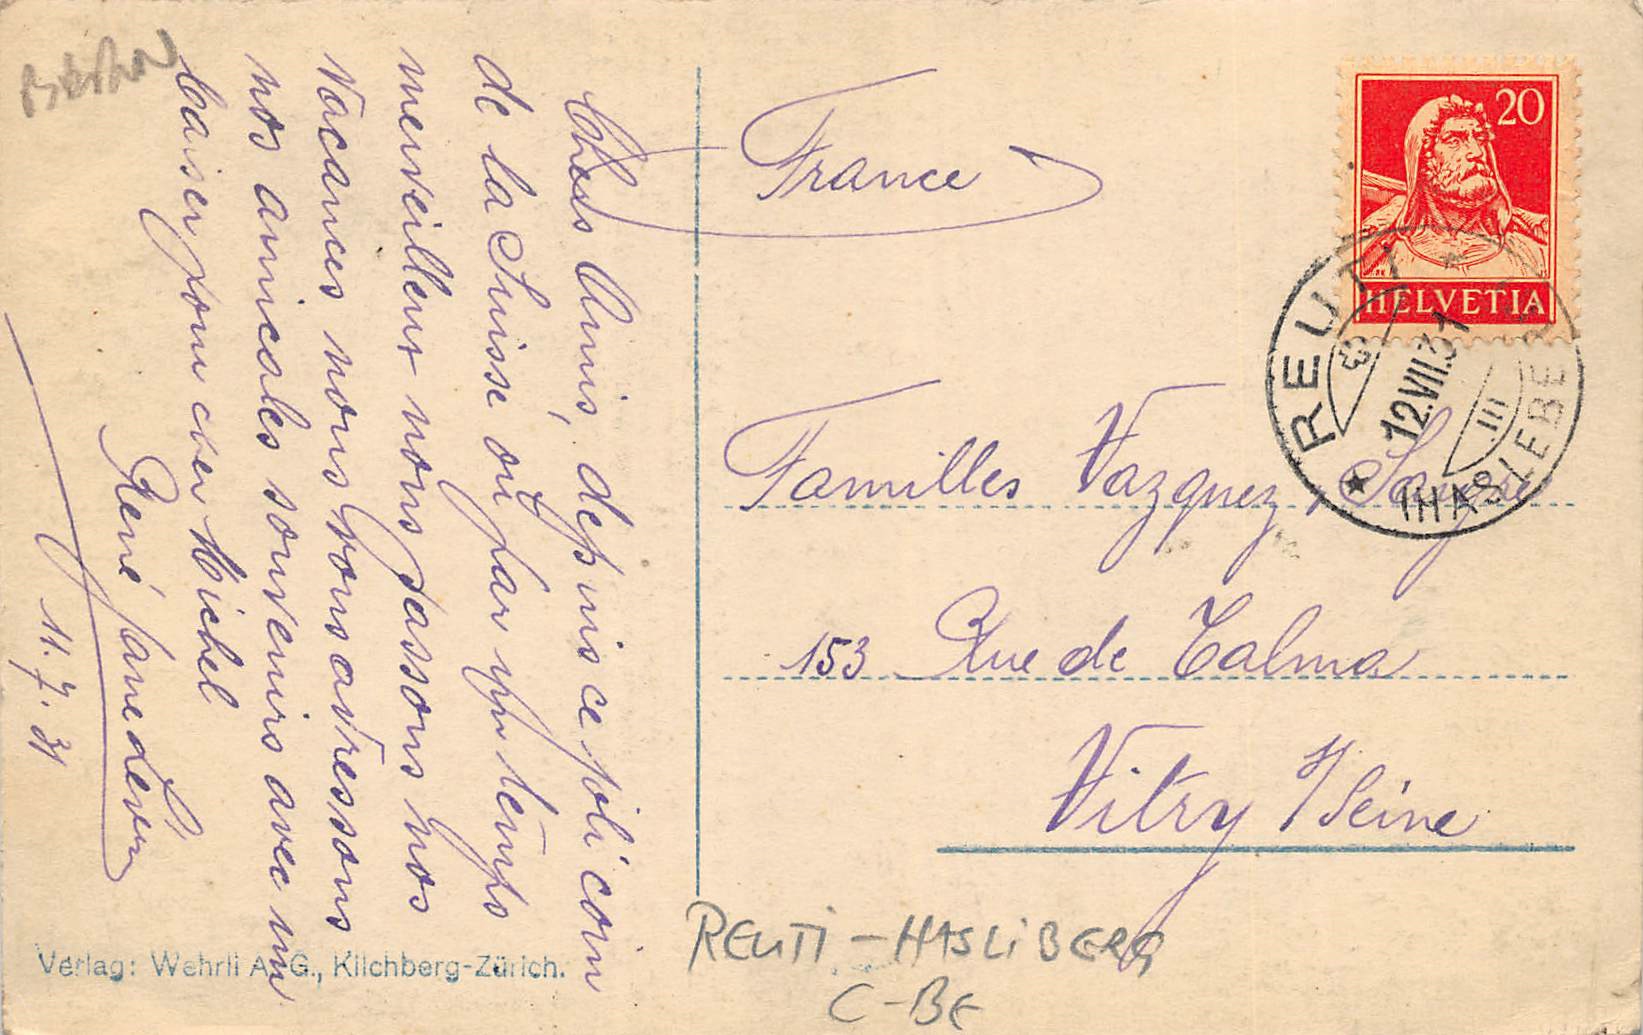 Chers Amis, depuis ce joli coin
de la Suisse où par un temps
merveilleux nous passons nos
vacances nous vous adressons
nos amicales souvenirs avec un
baiser pour cher Michel
René Jane
11.7.31
France
Familles Vazquez,
153 Rue de Talma
Vitry s/Seine
20
HELVETIA
REUTI
12.VII.31
III
(HASLEBERG)
REUTI - HASLIBERG
C-BE
Verlag: Wehrli A.-G., Kilchberg-Zürich.